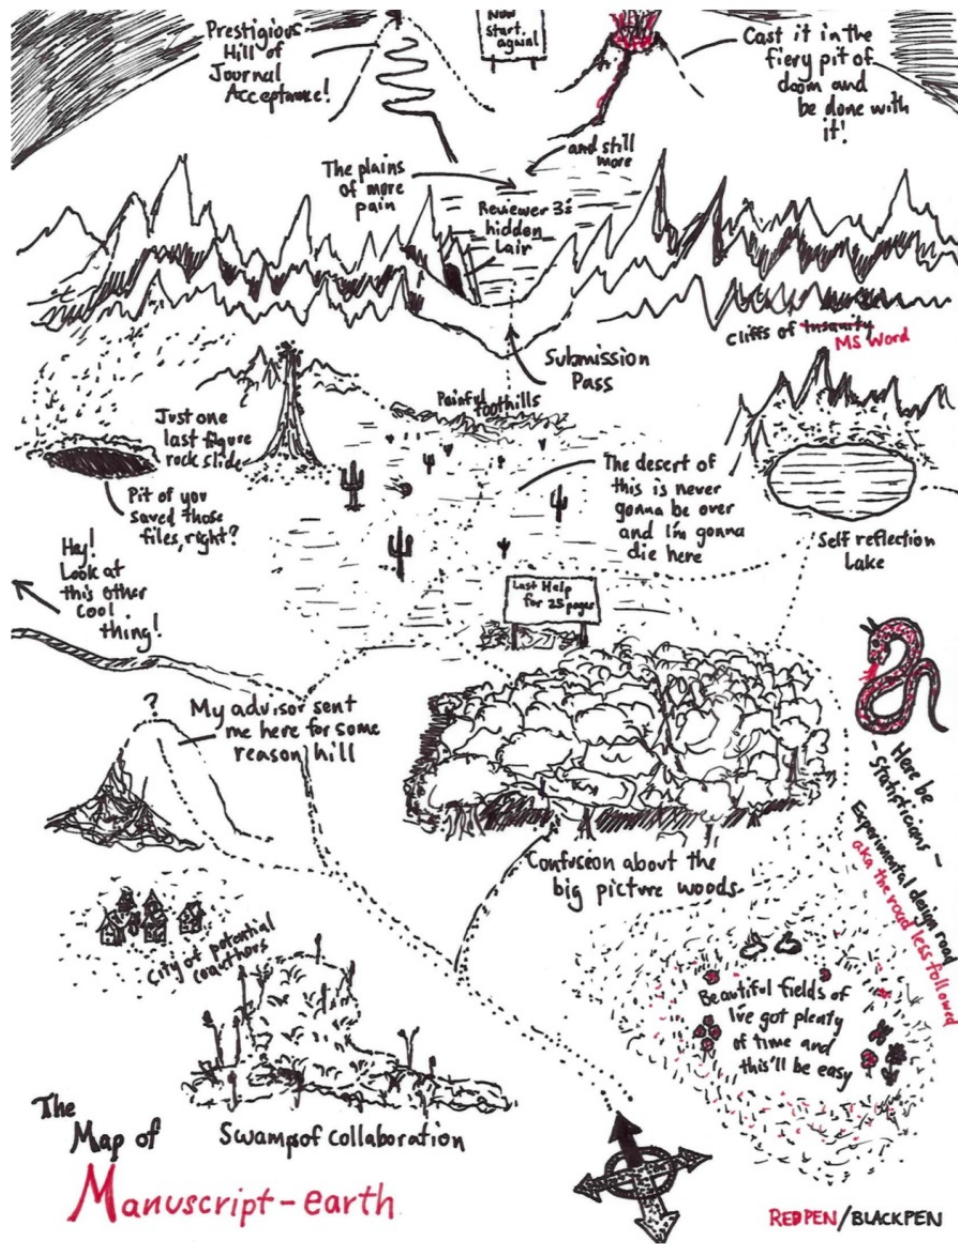 Prestigious
Hill of
Journal
Acceptance!
Now
start.
again!
Cast it in the
fiery pit of
doom and
be done with
it!
and still
more
The plains
of more
pain
Reviewer 3's
hidden
Lair
Cliffs of Insanity
MS Word
Submission
Pass
Painful foothills
Just one
last figure
rock slide
Pit of you
saved those
files, right?
The desert of
this is never
gonna be over
and I'm gonna
die here
Self reflection
Lake
Hey!
Look at
this other
cool
thing!
Last Help
for 25 pages
?
My advisor sent
me here for some
reason hill
- Here be
Statisticians -
Experimental design road
aka the road less followed
Confuseon about the
big picture woods
City of potential
coauthors
Beautiful fields of
I've got plenty
of time and
this'll be easy
Swamp of Collaboration
The
Map of
Manuscript-earth
REDPEN/BLACKPEN